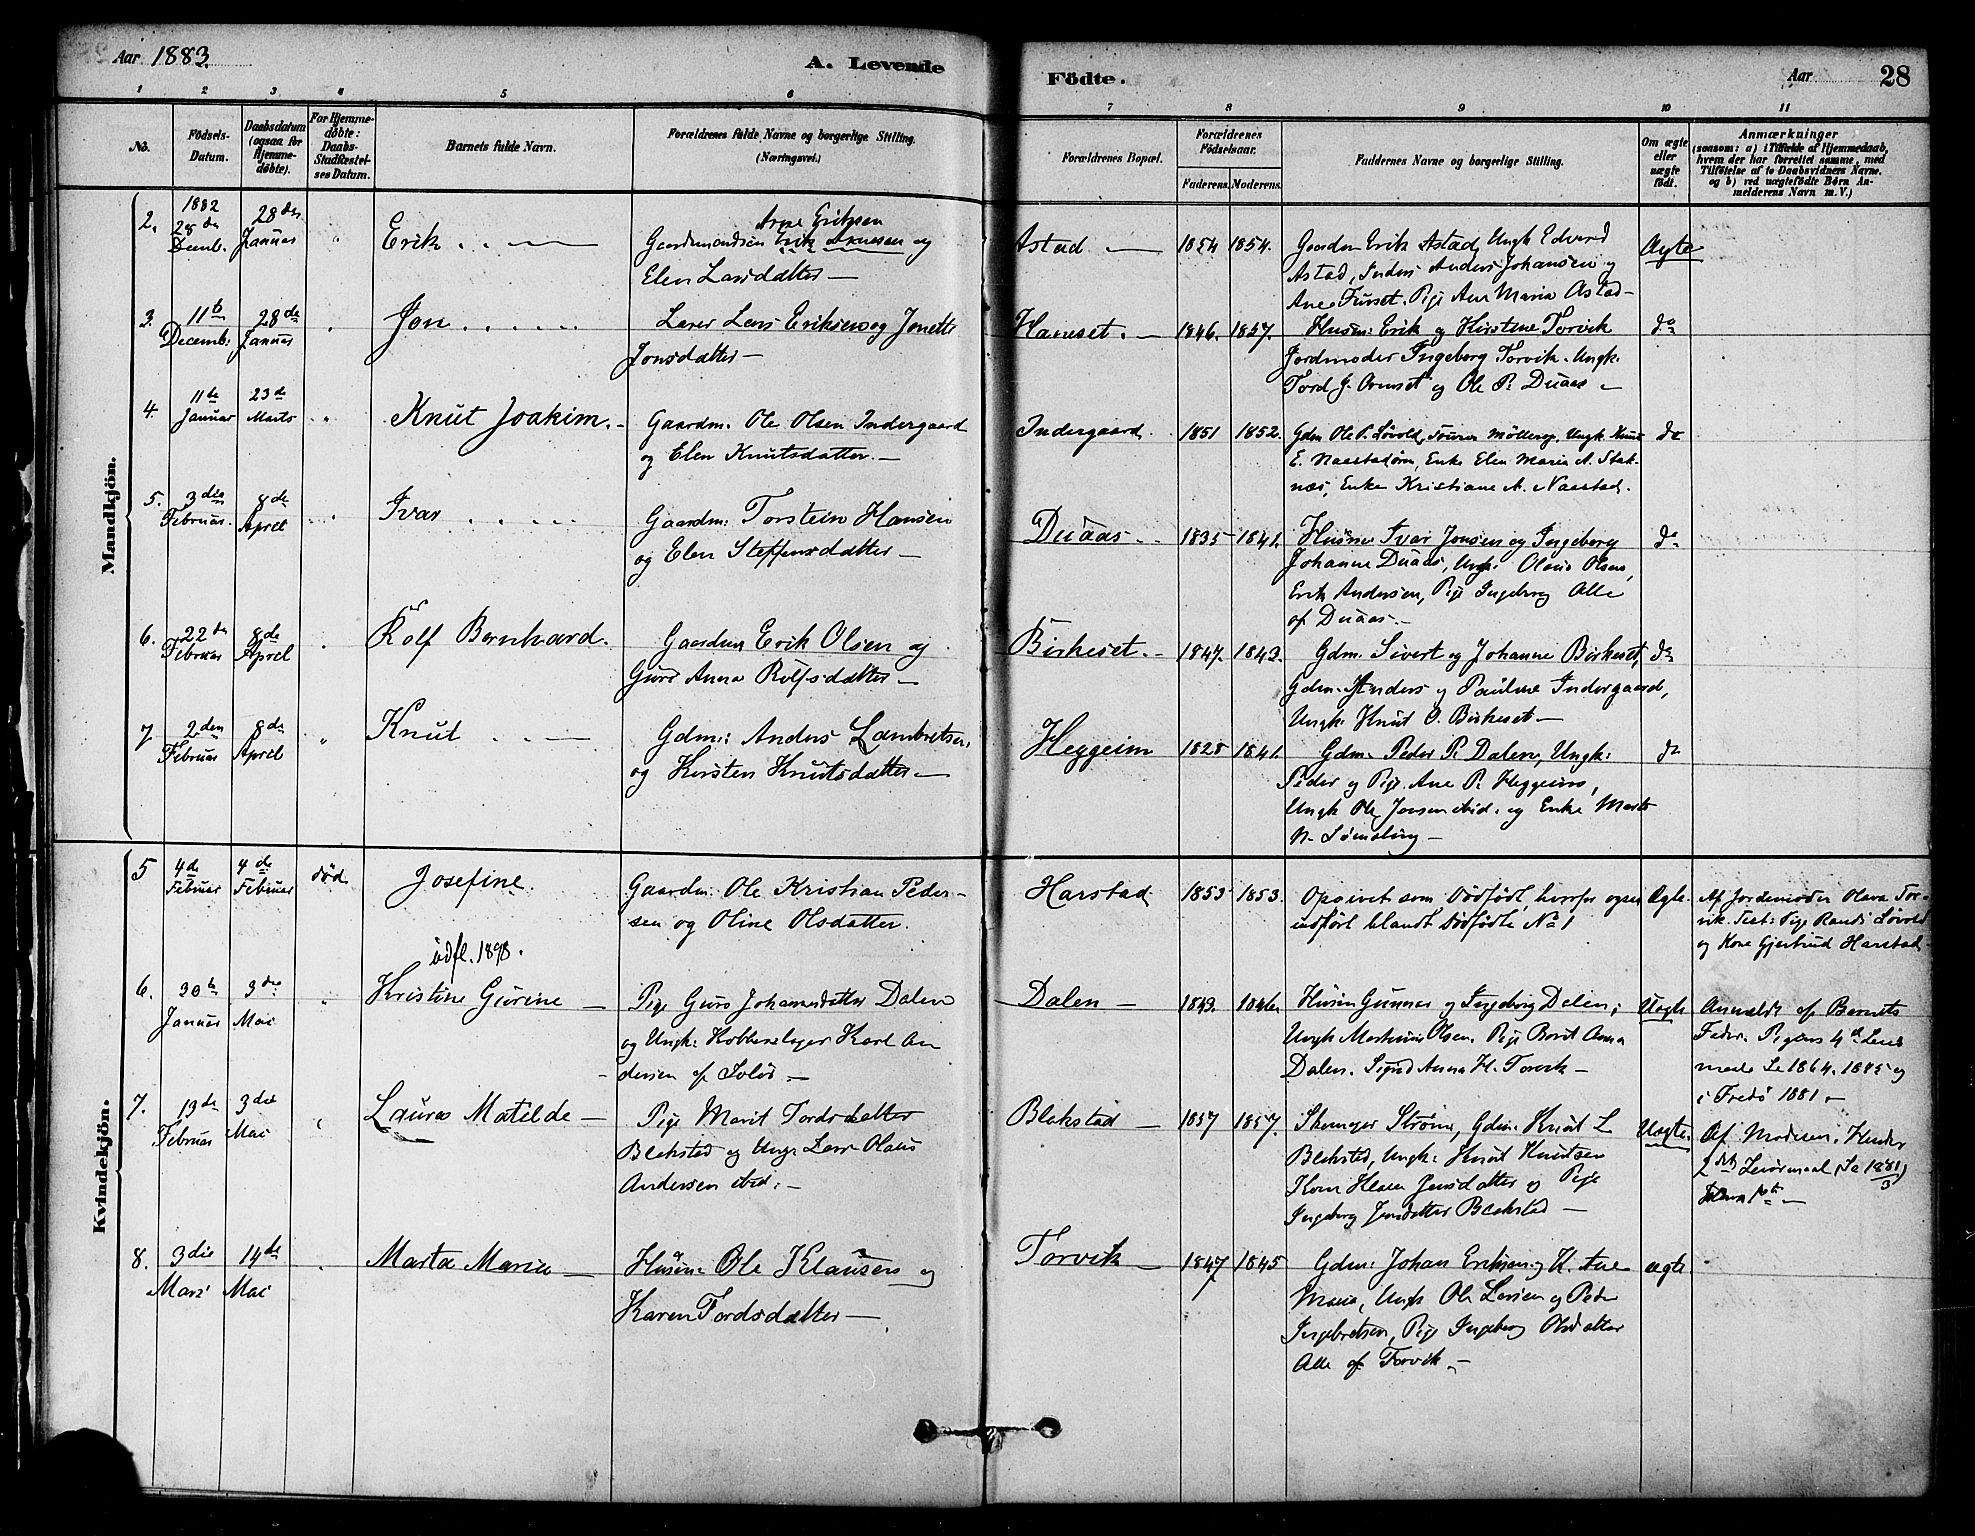 Aar 1883.
A. Levende
Födte.
Aar
28
1 2 3 4 5 6 7 8 9 10 11
No.
Födsels-Datum.
Daabsdatum (ogsaa for Hjemmedöbte).
For Hjemmedöbte: Daabs-Stadfæstelses Datum.
Barnets fulde Navn.
Forældrenes fulde Navne og borgerlige Stilling. (Næringsvei.)
Forældrenes Bopæl.
Forældrenes Födselsaar.
Faderens. Moderens.
Faddernes Navne og borgerlige Stilling.
Om ægte eller uægte födt.
Anmærkninger
(saasom: a) i Tilfælde af Hjemmedaab,
hvem der har forrettet samme, med
Tilföielse af to Daabsvidners Navne.
og b) ved uægtefödte Börn An-
melderens Navn m. V.)
Mandkjön.
2.
1882
28de Decemb.
28de Januar
"
Erik
Arne Eriksen
Gaardmandssön og
Elen Larsdatter
Astad
1854 1854.
Gaardm Erik Astad, Ungk Edvard
Astad, Anders Johansen og
Ane Furset. Pige Ane Maria Astad
Ægte
3.
11te Decemb.
28de Januar
Jon
Lærer Lars Eriksen og Jonette
Jonsdatter
Hanset.
1846. 1857.
Husm: Erik og Kirstine Torvik
Jordmoder Ingeborg Torvik. Ungk:
Tord J. Ormset og Ole P. Duaas
do
4.
11te Januar
23de Marts
"
Knut Joakim.
Gaardm: Ole Olsen Indergaard
og Elen Knutsdatter.
Indergaard
1851 1852.
Gdm Ole P. Lövold, Möllerop, Ungk. Knut
E. Naastadörn, Enke Elen Maria A. Stak-
næs, Enke Kristiane A. Naastad.
do
5.
3die Februar.
8de April
Ivar
Gaardm: Torstein Hansen
og Elen Steffensdatter
Duaas
1835 1841.
Husm: Ivar Jonsen og Ingeborg
Johanne Duaas, Ungk: Olaus Olsen,
Erik Andersen, Pige Ingeborg Alle
af Duaas.
do
6.
22de Februar
8de April
Rolf Bernhard.
Gaardm Erik Olsen og
Guro Anna Rolfsdatter
Birkeset.
1847. 1843.
Gdm. Sivert og Johanne Birkeset,
Gdm. Anders og Pauline Indergaard,
Ungk: Knut O. Birkeset
do
7
2den Februar
8de April
"
Knut
Gdm: Anders Lambretsen
og Kirsten Knutsdatter
Heggeim
1828 1841.
Gdm. Peder P. Dalen, Ungk:
Peder og Pige Ane P. Heggeim,
Ungk Ole Jonsen ibid. og Enke Marit
N.
do
Kvindekjön.
5
4de Februar
4de Februar
död
Josefine.
Gaardm: Ole Kristian Peder-
sen og Oline Olsdatter.
Harstad
1853 1853.
Opgivet som Dödfödt, hvorfor ogsaa
indfört blandt Dödfödte No 1
Ægte.
Af Jordemoder Olava Tor-
vik. Test: Pige Randi Lövold
og Kone Gjertrud Harstad
6.
30te Januar
3die Mai
"
udfl. 1898.
Kristine Gurine
Pige Guro Johannesdatter Dalen
og Ungk: Kobberslager Karl An
dersen af
Dalen
1843. 1846.
Husm Gunnar og Ingeborg Dalen,
Ungk Martinus Olsen Pige Borit Anna
Dalen. Sigrid Anna H. Torvik
Uægte
Anmeldt af Barnets
Fader. Pigens 4de Leier
maal Se 1864. 1875 og
i Fredö 1881
7.
13de Februar
3die Mai
Laura Matilde
Pige Marit Tordsdatter
Blakstad og Ungk Olaus
Andersen ibid.
Blakstad
1857 1857.
Skomager Ström, Gdm: Knut L
Blakstad, Ungk: Knut Knutsen
Kone Jensdatter og Pige
Ingeborg Jensdatter Blakstad
Uægte.
Af Moderen. Hendes
2det Leiermaal (Se 1881)
3
8.
3die Mars
14de Mai
Marta Maria
Husm: Ole Klausen og
Karen Tordsdatter
Torvik
1847 1845
Gdm: Johan Eriksen og K. Ane
Maria, Ungk Ole Larsen og Peder
Ingebretsen, Pige Ingeborg Olsdatter
Alle af Torvik
ægte